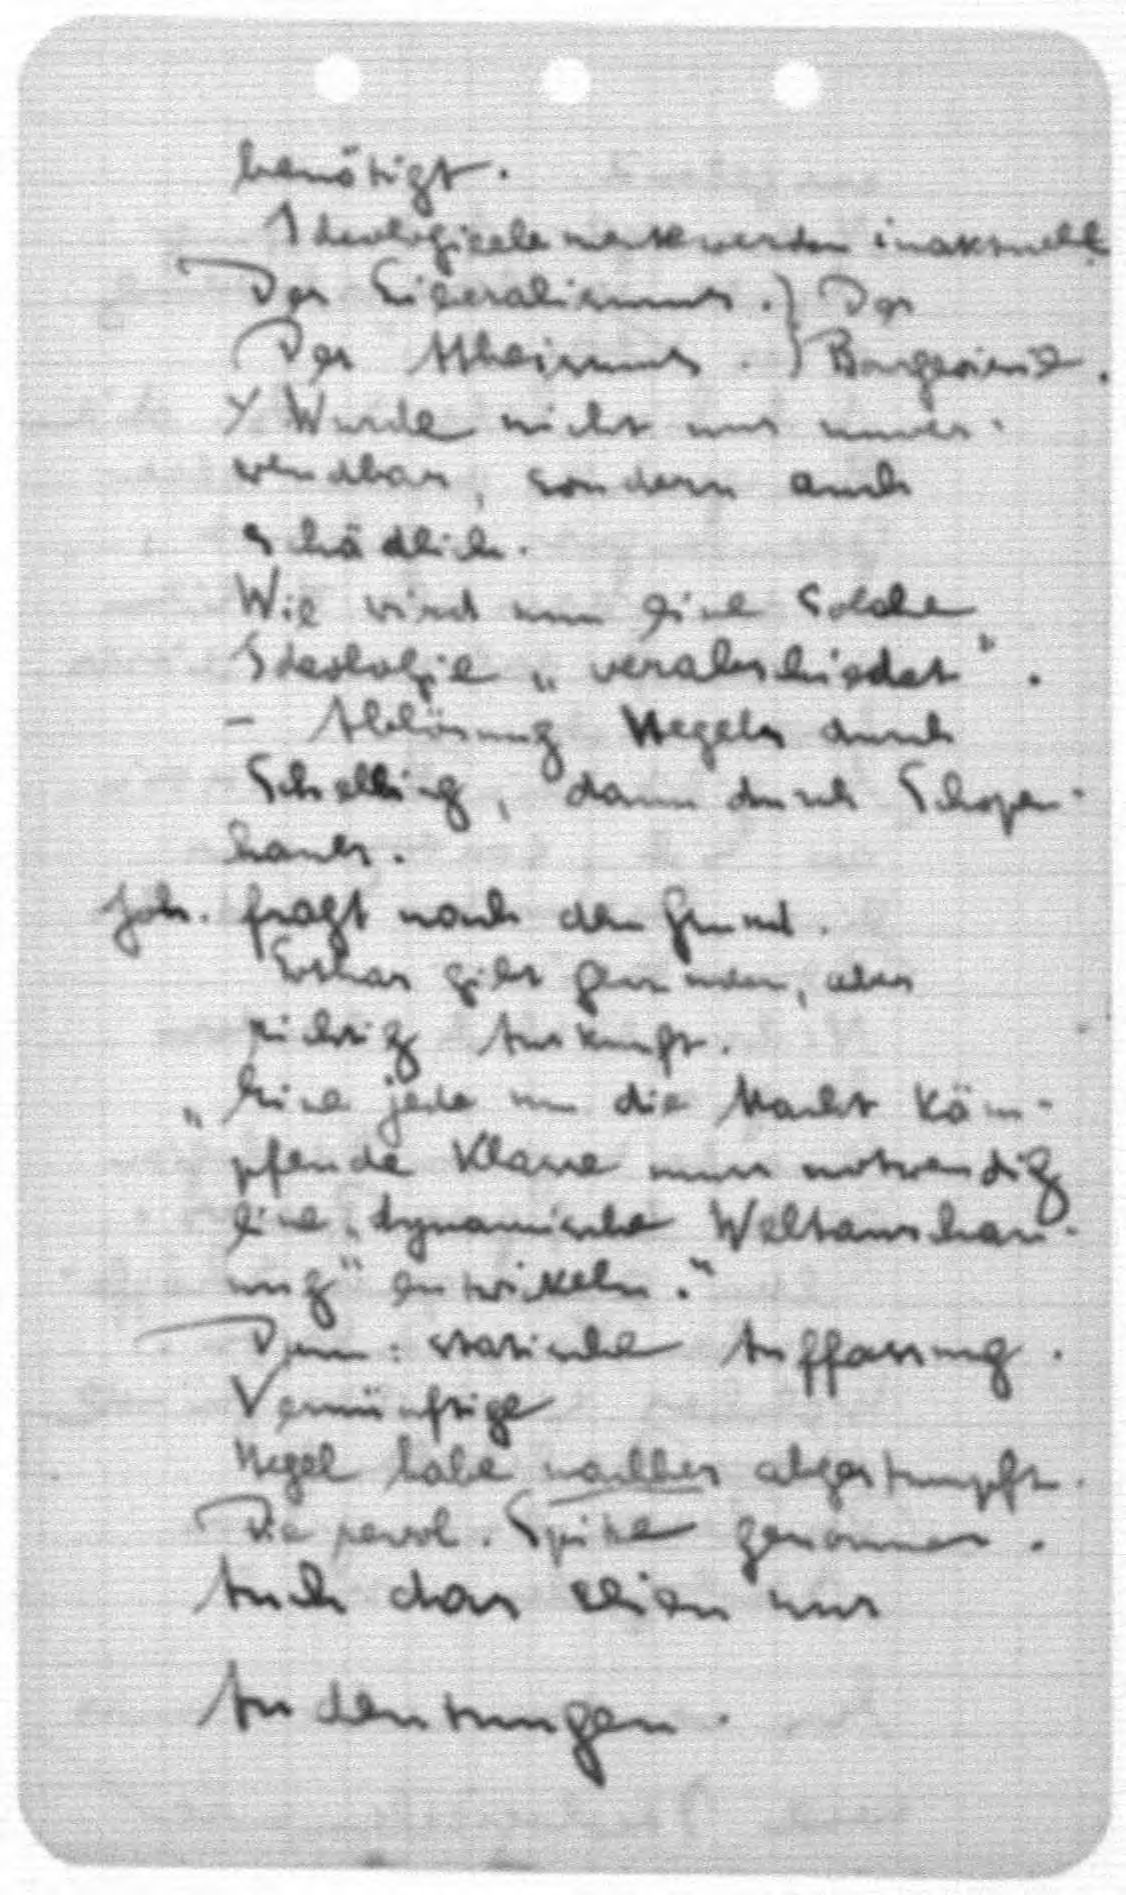 benötigt.
Ideologieelemente werden inaktuell
Der Liberalismus. } Der
Der Atheismus. } Bourgeoisie.
Wurde nicht nur unver-
wendbar, sondern auch
schädlich.
Wie wird nun eine solche
Ideologie „verabschiedet“.
– Ablösung Hegels durch
Schelling, dann durch Schopen-
hauer.
Joh. fragt nach dem Grund.
Lothar gibt gewunden, aber
richtig Auskunft.
„Eine jede um die Macht käm-
pfende Klasse muss notwendig
eine „dynamische Weltanschau-
ung“ entwikeln.“
Dann: statische Auffassung.
Vernünftige
Hegel habe nachher abgestumpft.
Die revol. Spitze genommen.
Auch das eben nur
Andeutungen.